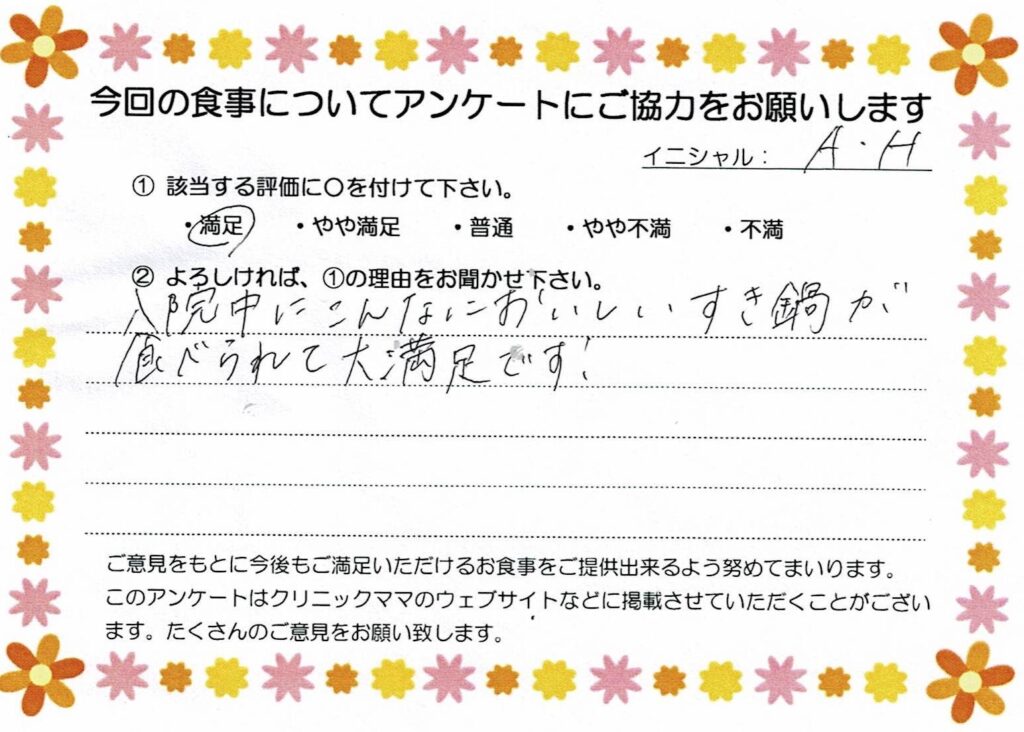 今回の食事についてアンケートにご協力をお願いします
イニシャル： A・H
① 該当する評価に〇を付けて下さい。
・満足 ・やや満足 ・普通 ・やや不満 ・不満
② よろしければ、①の理由をお聞かせ下さい。
入院中にこんなにおいしいすき鍋が
食べられて大満足です!
ご意見をもとに今後もご満足いただけるお食事をご提供出来るよう努めてまいります。
このアンケートはクリニックママのウェブサイトなどに掲載させていただくことがござい
ます。たくさんのご意見をお願い致します。